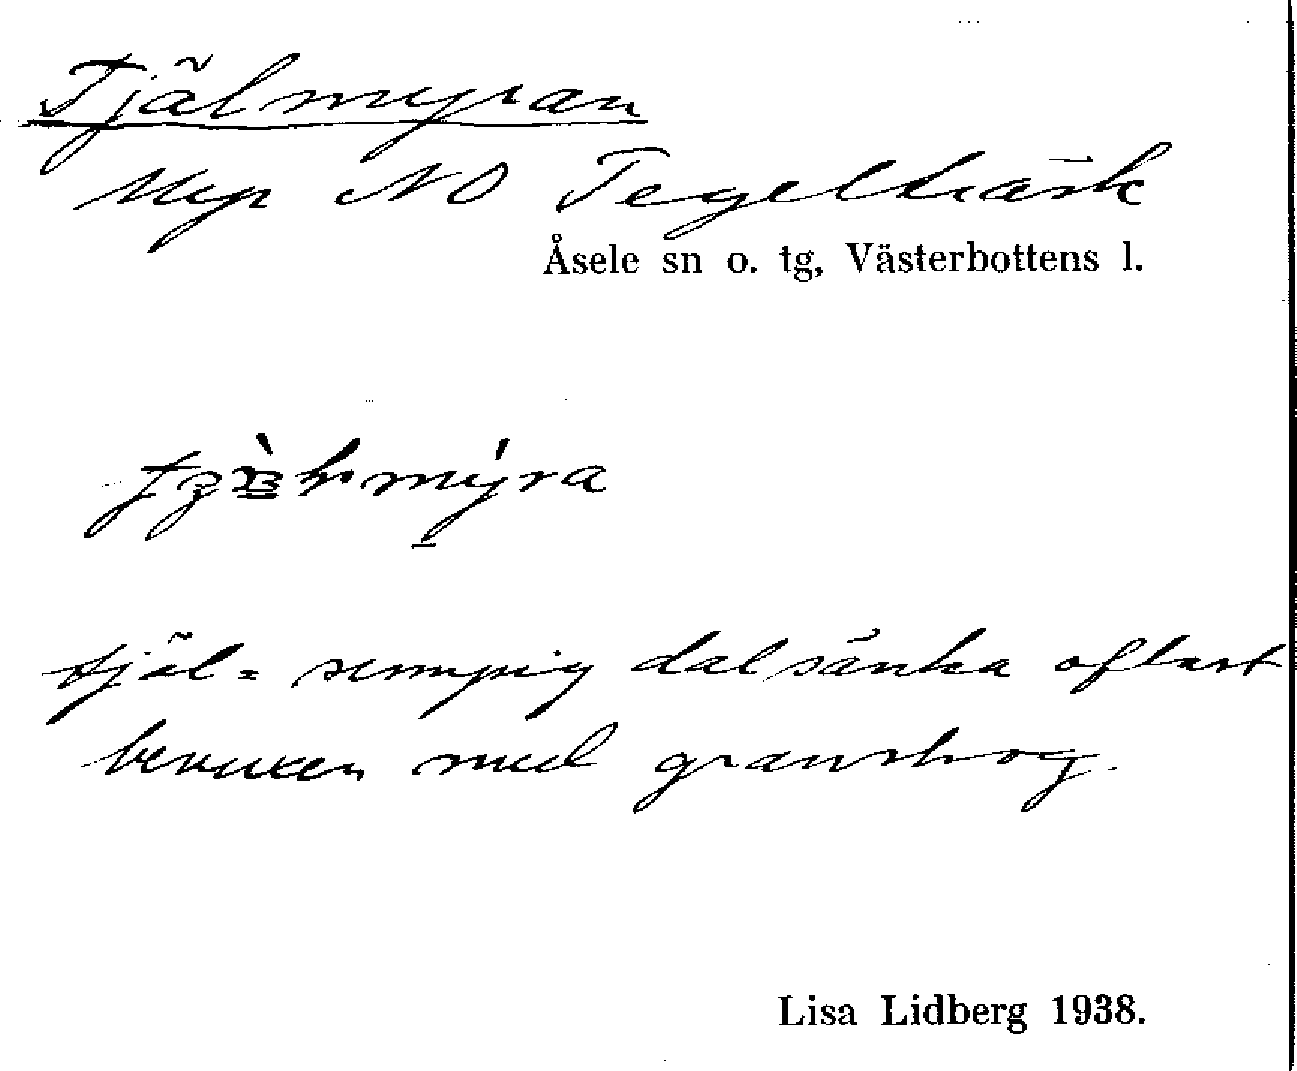 Tjälmyran
Myr NO Tegelträsk
Åsele sn o. tg, Västerbottens l.
tjäl = sumpig dalsänka oftast
bevuxen med granskog.
Lisa Lidberg 1938.